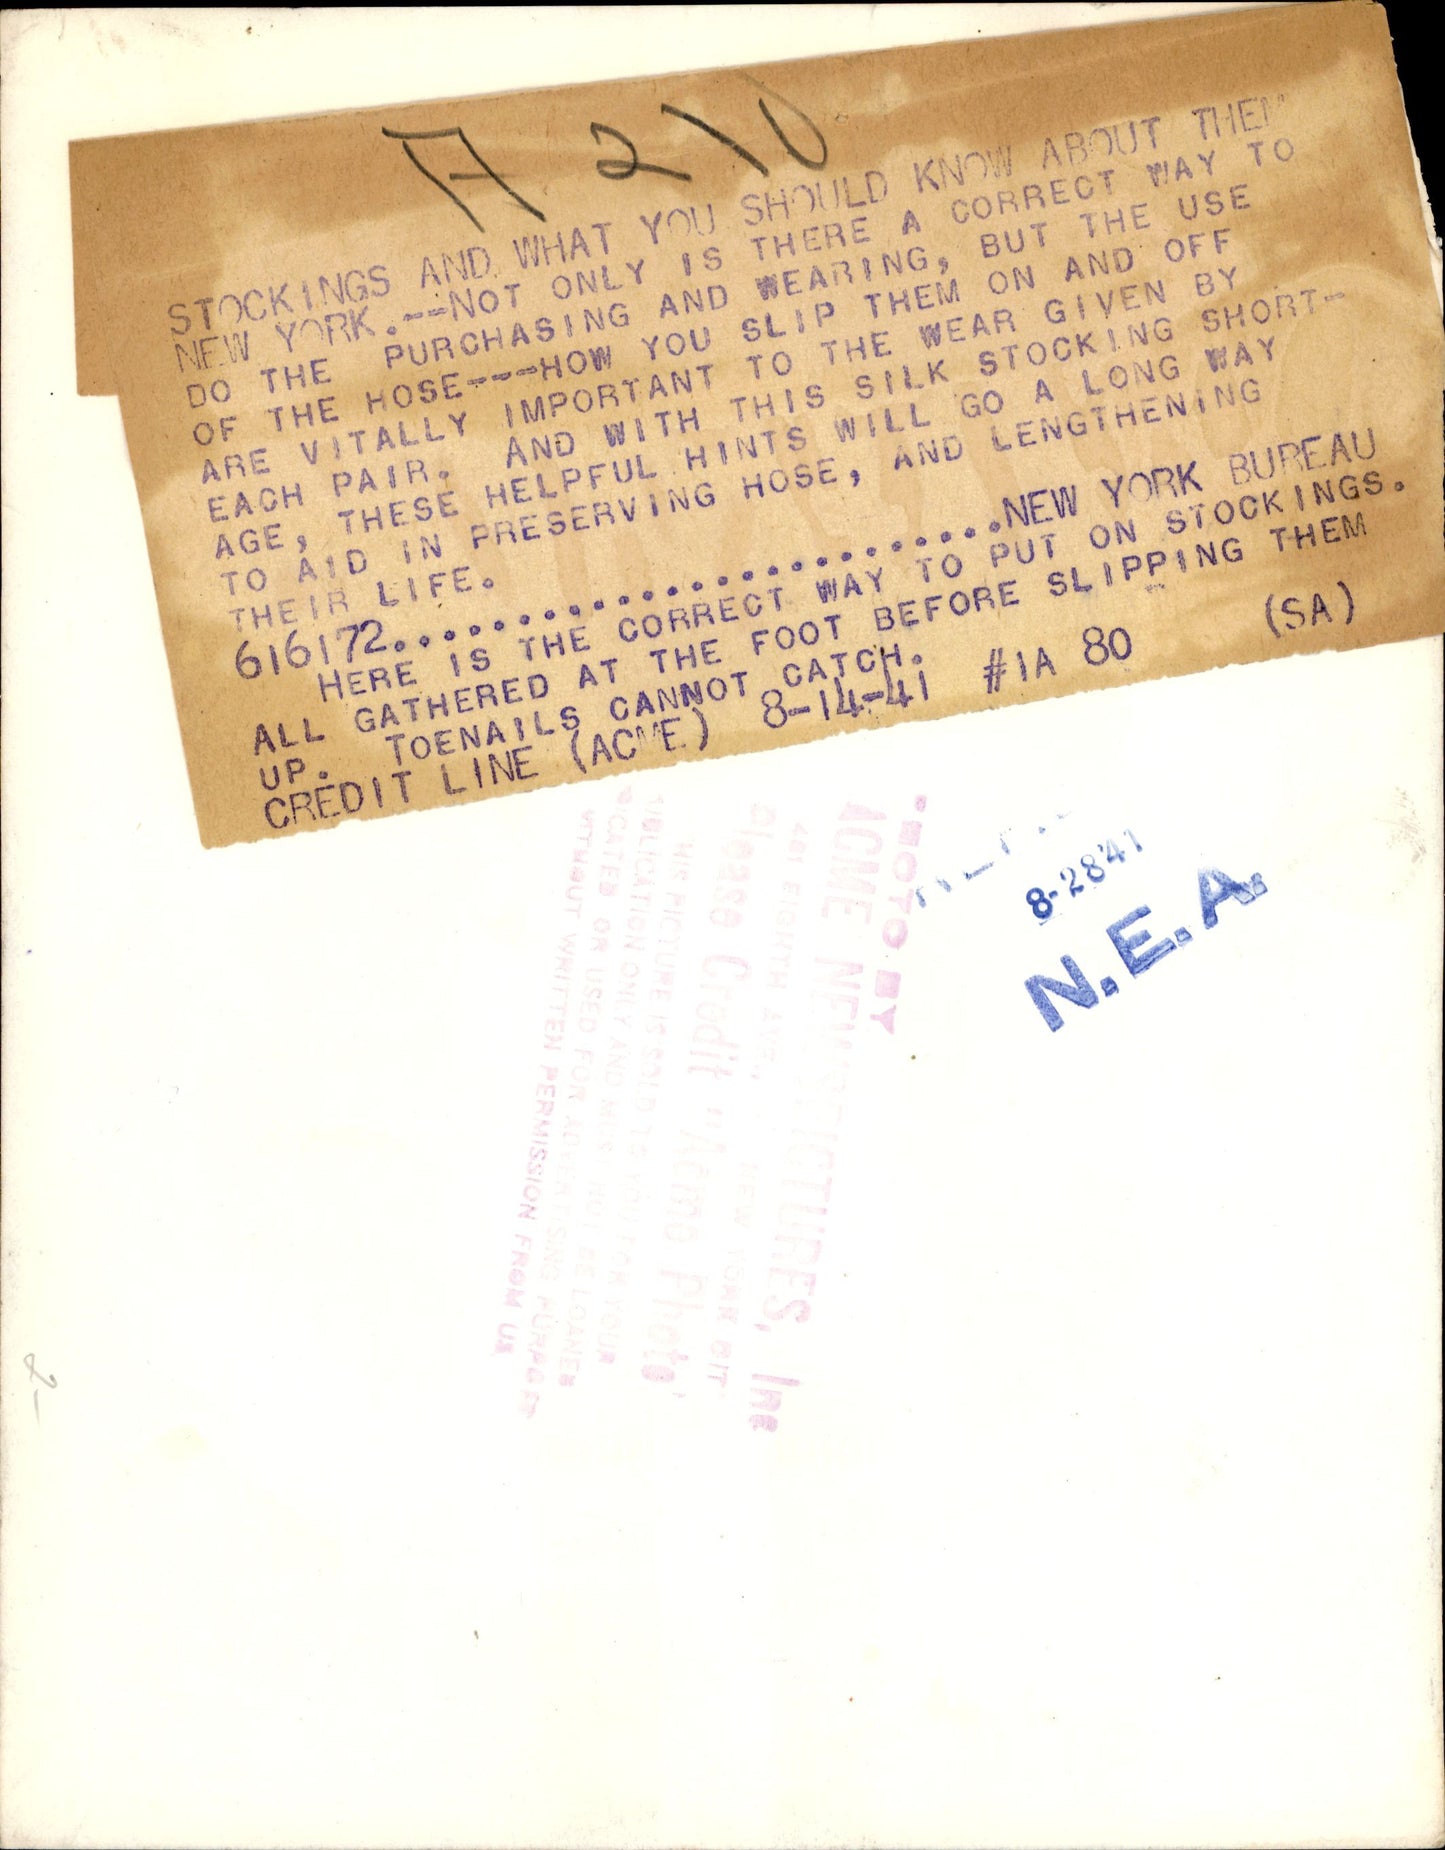 A 210
STOCKINGS AND WHAT YOU SHOULD KNOW ABOUT THEM
NEW YORK.--NOT ONLY IS THERE A CORRECT WAY TO
DO THE PURCHASING AND WEARING, BUT THE USE
OF THE HOSE---HOW YOU SLIP THEM ON AND OFF
ARE VITALLY IMPORTANT TO THE WEAR GIVEN BY
EACH PAIR. AND WITH THIS SILK STOCKING SHORT-
AGE, THESE HELPFUL HINTS WILL GO A LONG WAY
TO AID IN PRESERVING HOSE, AND LENGTHENING
THEIR LIFE.
616172..........................NEW YORK BUREAU
HERE IS THE CORRECT WAY TO PUT ON STOCKINGS.
ALL GATHERED AT THE FOOT BEFORE SLIPPING THEM
UP. TOENAILS CANNOT CATCH. (SA)
CREDIT LINE (ACME) 8-14-41 #1A 80
8-28 41
N.E.A.
PHOTO BY
ACME NEWSPICTURES, Inc
461 EIGHTH AVE., NEW YORK CIT
Please Credit "Acme Photo"
THIS PICTURE IS SOLD TO YOU FOR YOUR
PUBLICATION ONLY AND MUST NOT BE LOANED
OR USED FOR ADVERTISING PURPOSES
WITHOUT WRITTEN PERMISSION FROM US
2-